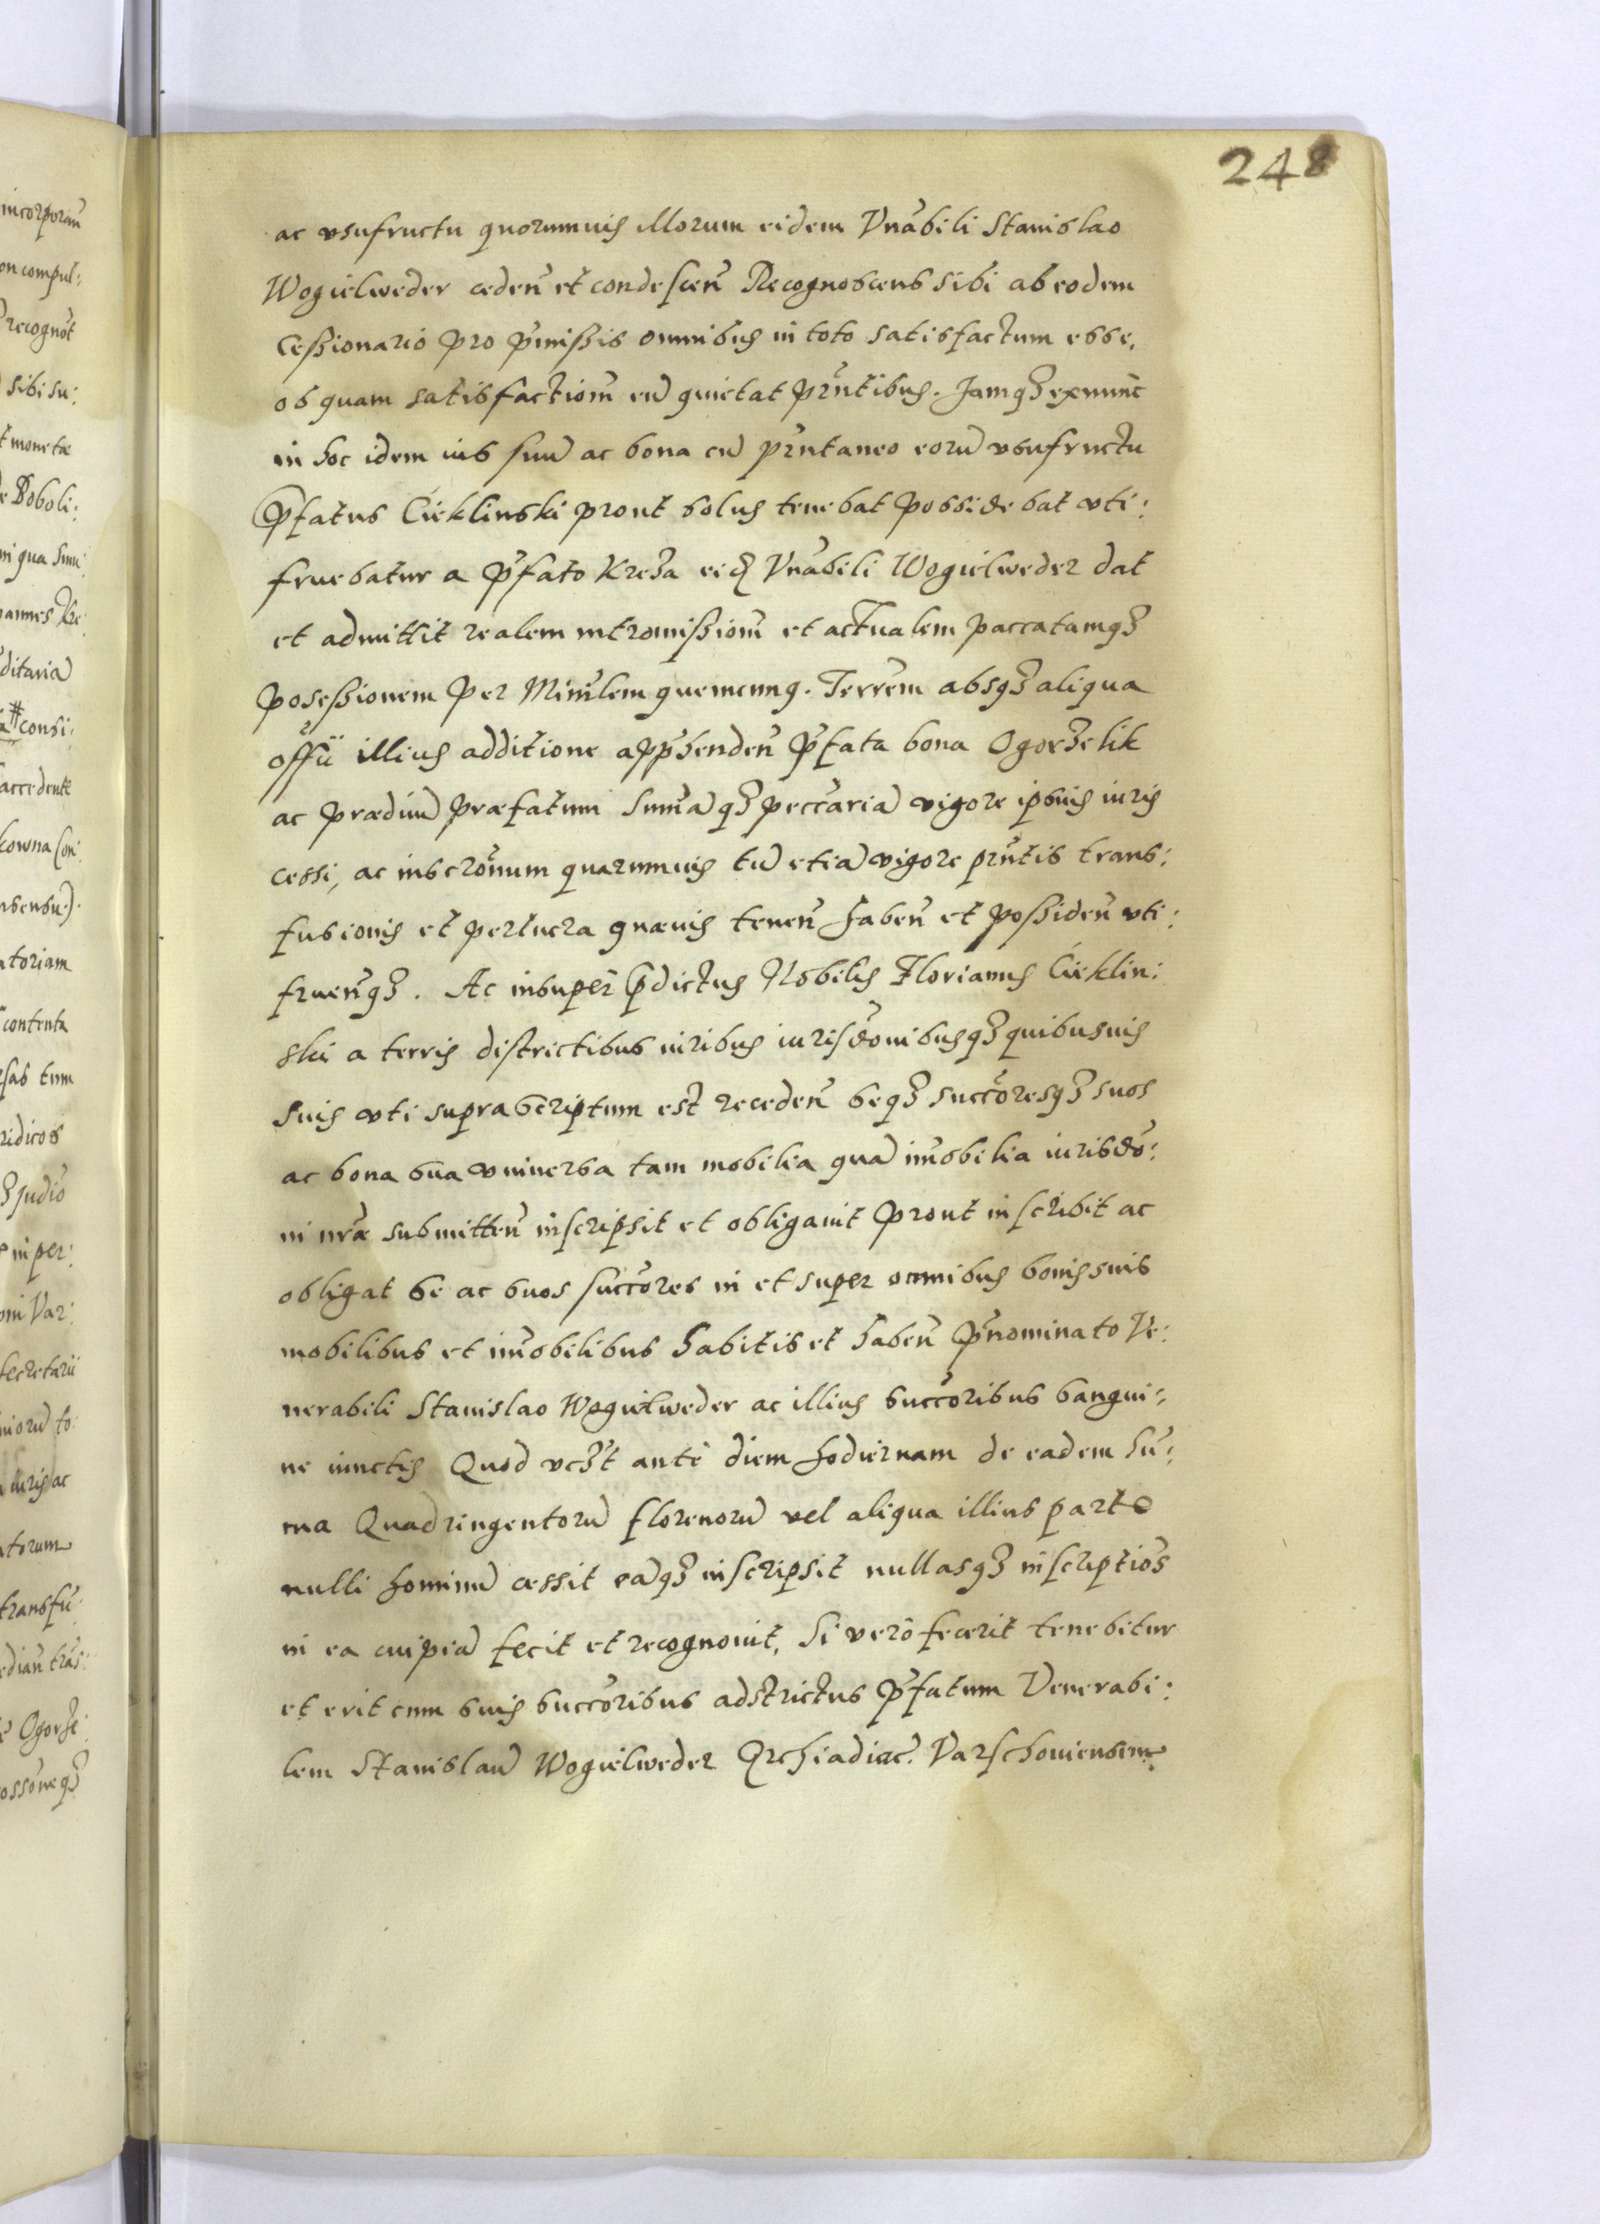 248
ac vsufructu quorumuis illorum eidem Vnābili Stanislao
Wogielweder cedeñ et condesceñ Recognoscens sibi ab eodem
Cessionario pro p̄missis omnibus in toto satisfactum esse,
ob quam satisfactiom̄ eū quietat prñtibus. Jamqȝ exnunc
in hoc idem ius suū ac bona cū prñtaneo eorū vsufructu
p̄fatus Cieklinski prout solus tenebat possidebat vti:
fruebatur a p̄fato Kreza eiđ Vnābili Wogielweder dat
et admittit realem intromissiom̄ et actualem paccatamqȝ
posessionem per Minr̄lem quemcunq. Terrēm absqȝ aliqua
offii illius additione app̄henden̄ p̄fata bona Ogorzelik
ac prædiū præfatum Summāqȝ pecc̄ariā vigore ipsuis iuris
cessi, ac inscrōnum quarumuis tū etiā vigore prñtis trans:
fusionis et per lucra quæuis teneñ habeñ et possideñ vti:
frueñqȝ. Ac insuper p̄dictus Nobilis Florianus Cieklin:
ski a terris districtibus iuribus iurisdōnibusqȝ quibusuis
suis vti suprascriptum est recedeñ seqȝ succ̄oresqȝ suos
ac bona sua vniuersa tam mobilia quā im̄obilia iurisdō:
ni nr̄æ submitteñ inscripsit et obligauit prout inscribit ac
obligat se ac suos succ̄ores in et super omnibus bonis suis
mobilibus et im̄obilibus habitis et habeñ p̄nominato Ve:
nerabili Stanislao Wogielweder ac illius succ̄oribus sangui:
ne iunctis Quod vcȝt ante diem hodiernam de eadem Sū:
ma Quadringentorū florenorū vel aliqua illius parte
nulli hominū cessit eāqȝ inscripsit nullasqȝ inscriptiōs
in ea cuipiā fecit et recognouit, Si verò fecerit tenebitur
et erit cum suis succ̄oribus adstrictus p̄fatum Venerabi:
lem Stanislaū Wogielweder Archiadiac̄. Varschouiensem